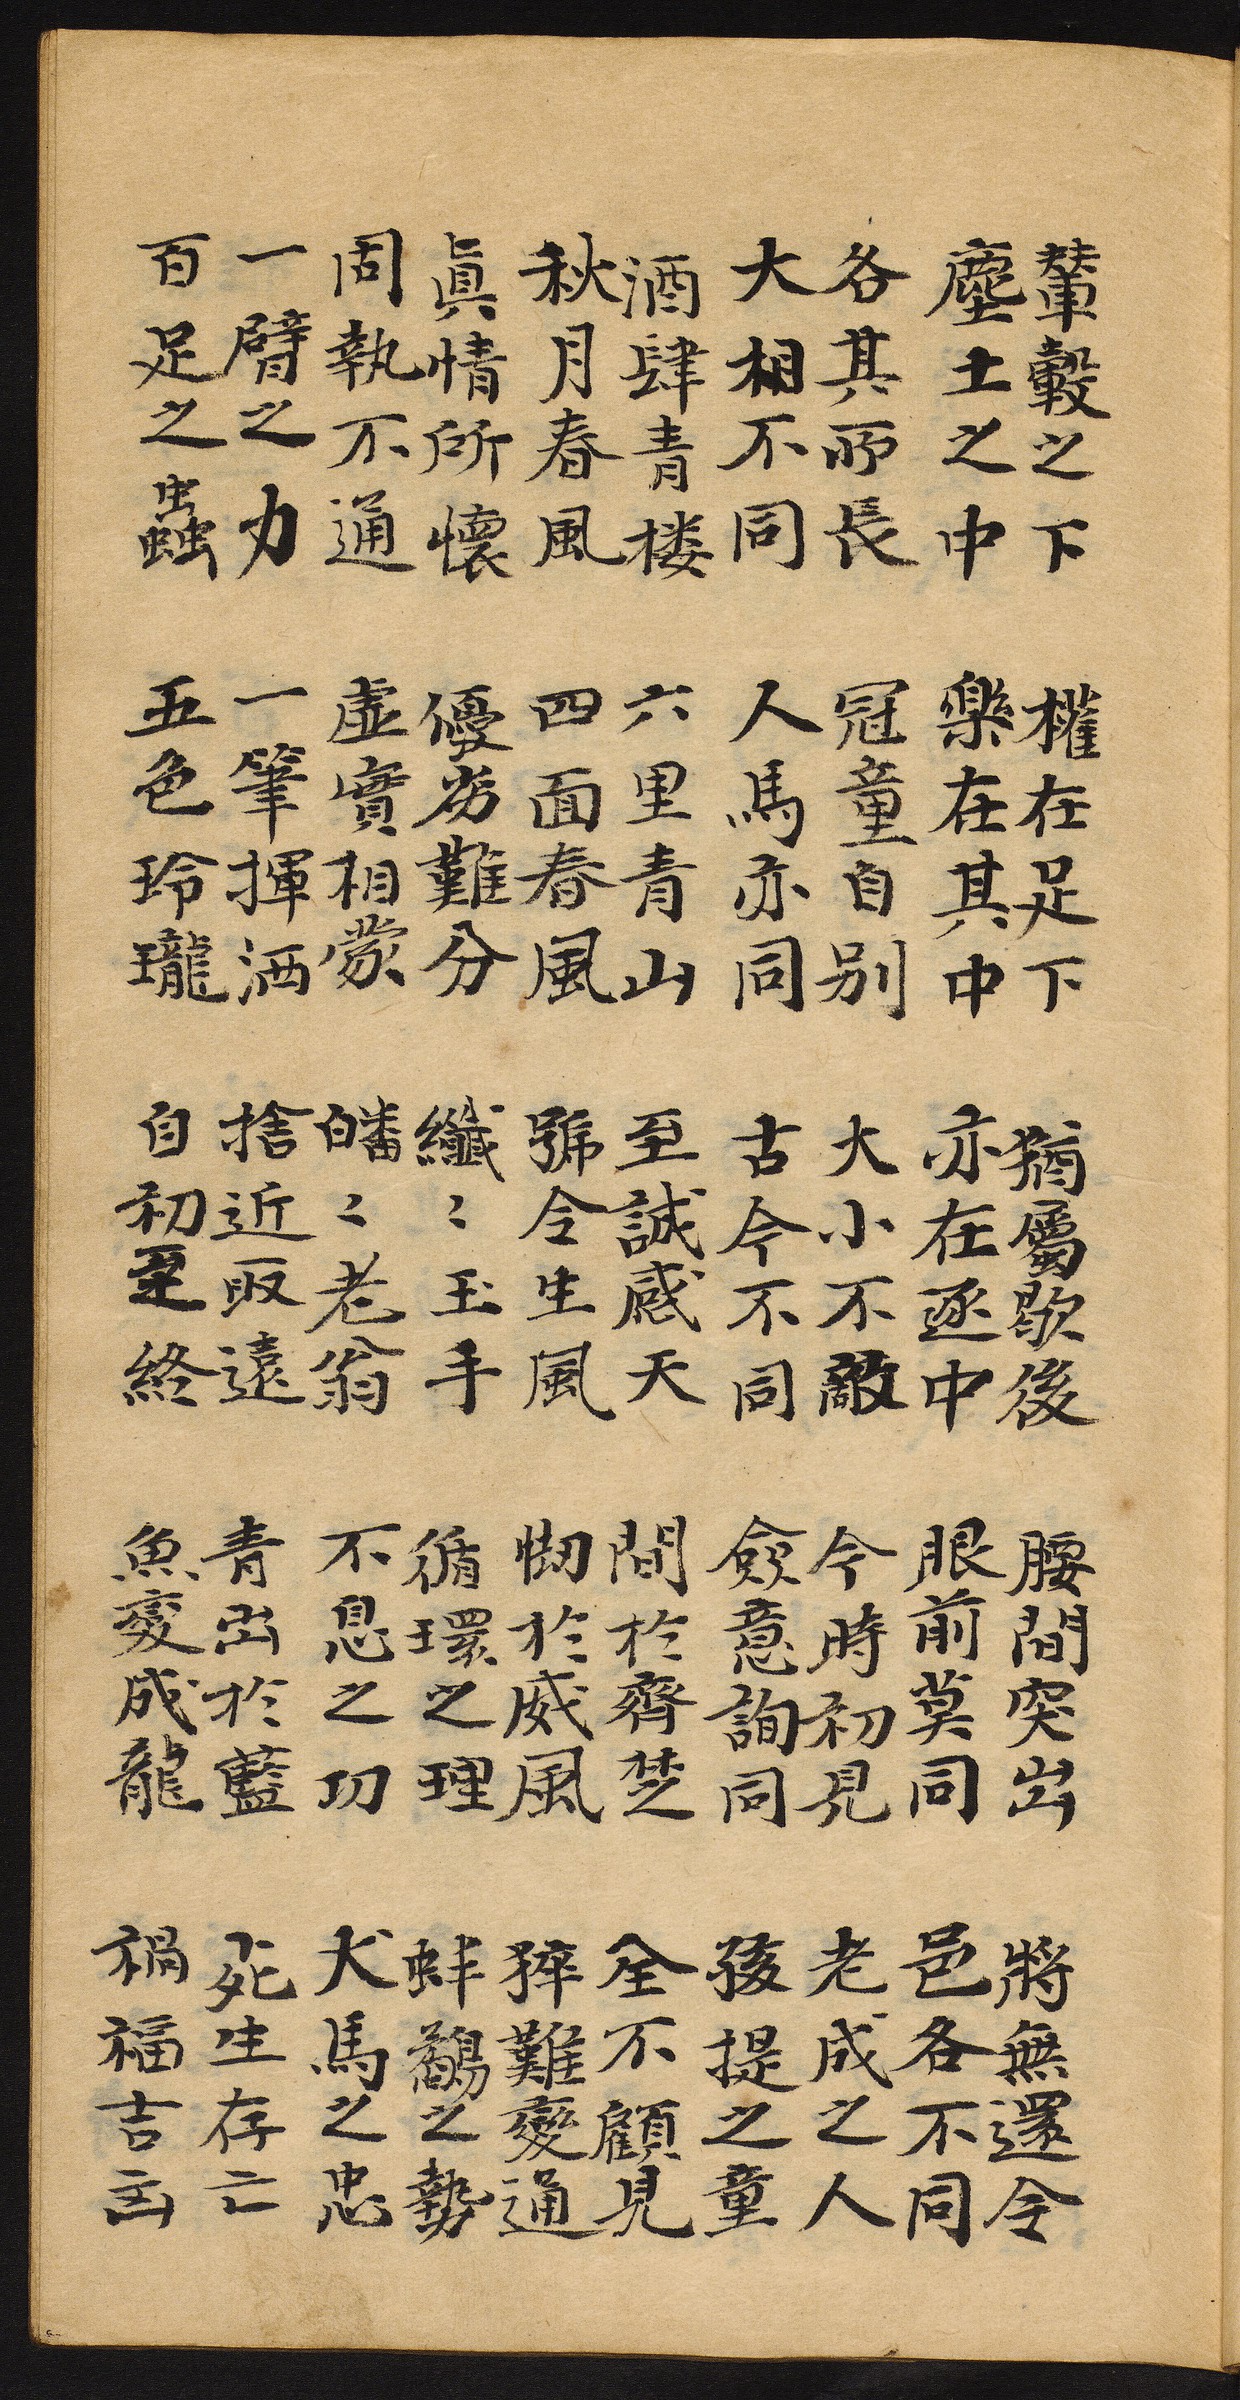 輦轂之下 權在足下 猶屬歇後 腰間突出 將無還令
塵土之中 樂在其中 亦在逐中 眼前莫同 邑各不同
各其所長 冠童自別 大小不敵 今時初見 老成之人
大相不同 人馬亦同 古今不同 僉意詢同 孩提之童
酒肆青楼 六里青山 至誠感天 間於齊楚 全不顧見
秋月春風 四面春風 號令生風 㤼於威風 猝難變通
眞情所懷 優劣難分 纖〻玉手 循環之理 蚌鷸之勢
固執不通 虛實相蒙 皤〻老翁 不息之功 犬馬之忠
一臂之力 一筆揮洒 捨近取遠 青出於藍 死生存亡
百足之蟲 五色玲瓏 自初至終 魚變成龍 禍福吉凶